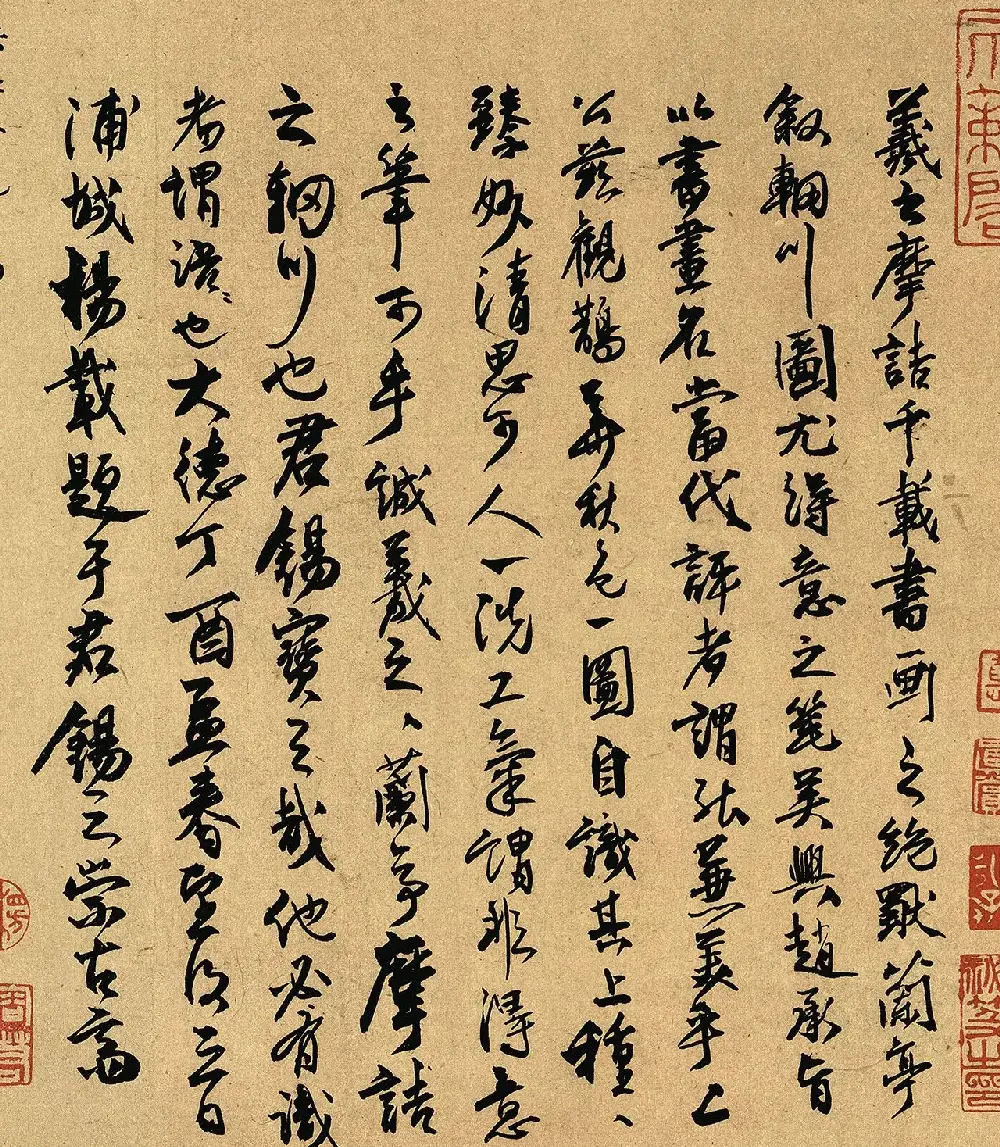 羲之摩詰千載書画之絶獨蘭亭
敘輞川圖尤得意之筆吳興趙承旨
以書畫名當代評者謂能兼美乎二
公茲觀鵲華秋色一圖自識其上種〻
臻妙清思可人一洗工氣謂非得意
之筆可乎誠羲之〻蘭亭摩詰
之輞川也君錫寶之哉他必有識
者謂語〻也大德丁酉孟春望後三日
浦城楊載題于君錫之崇古齋